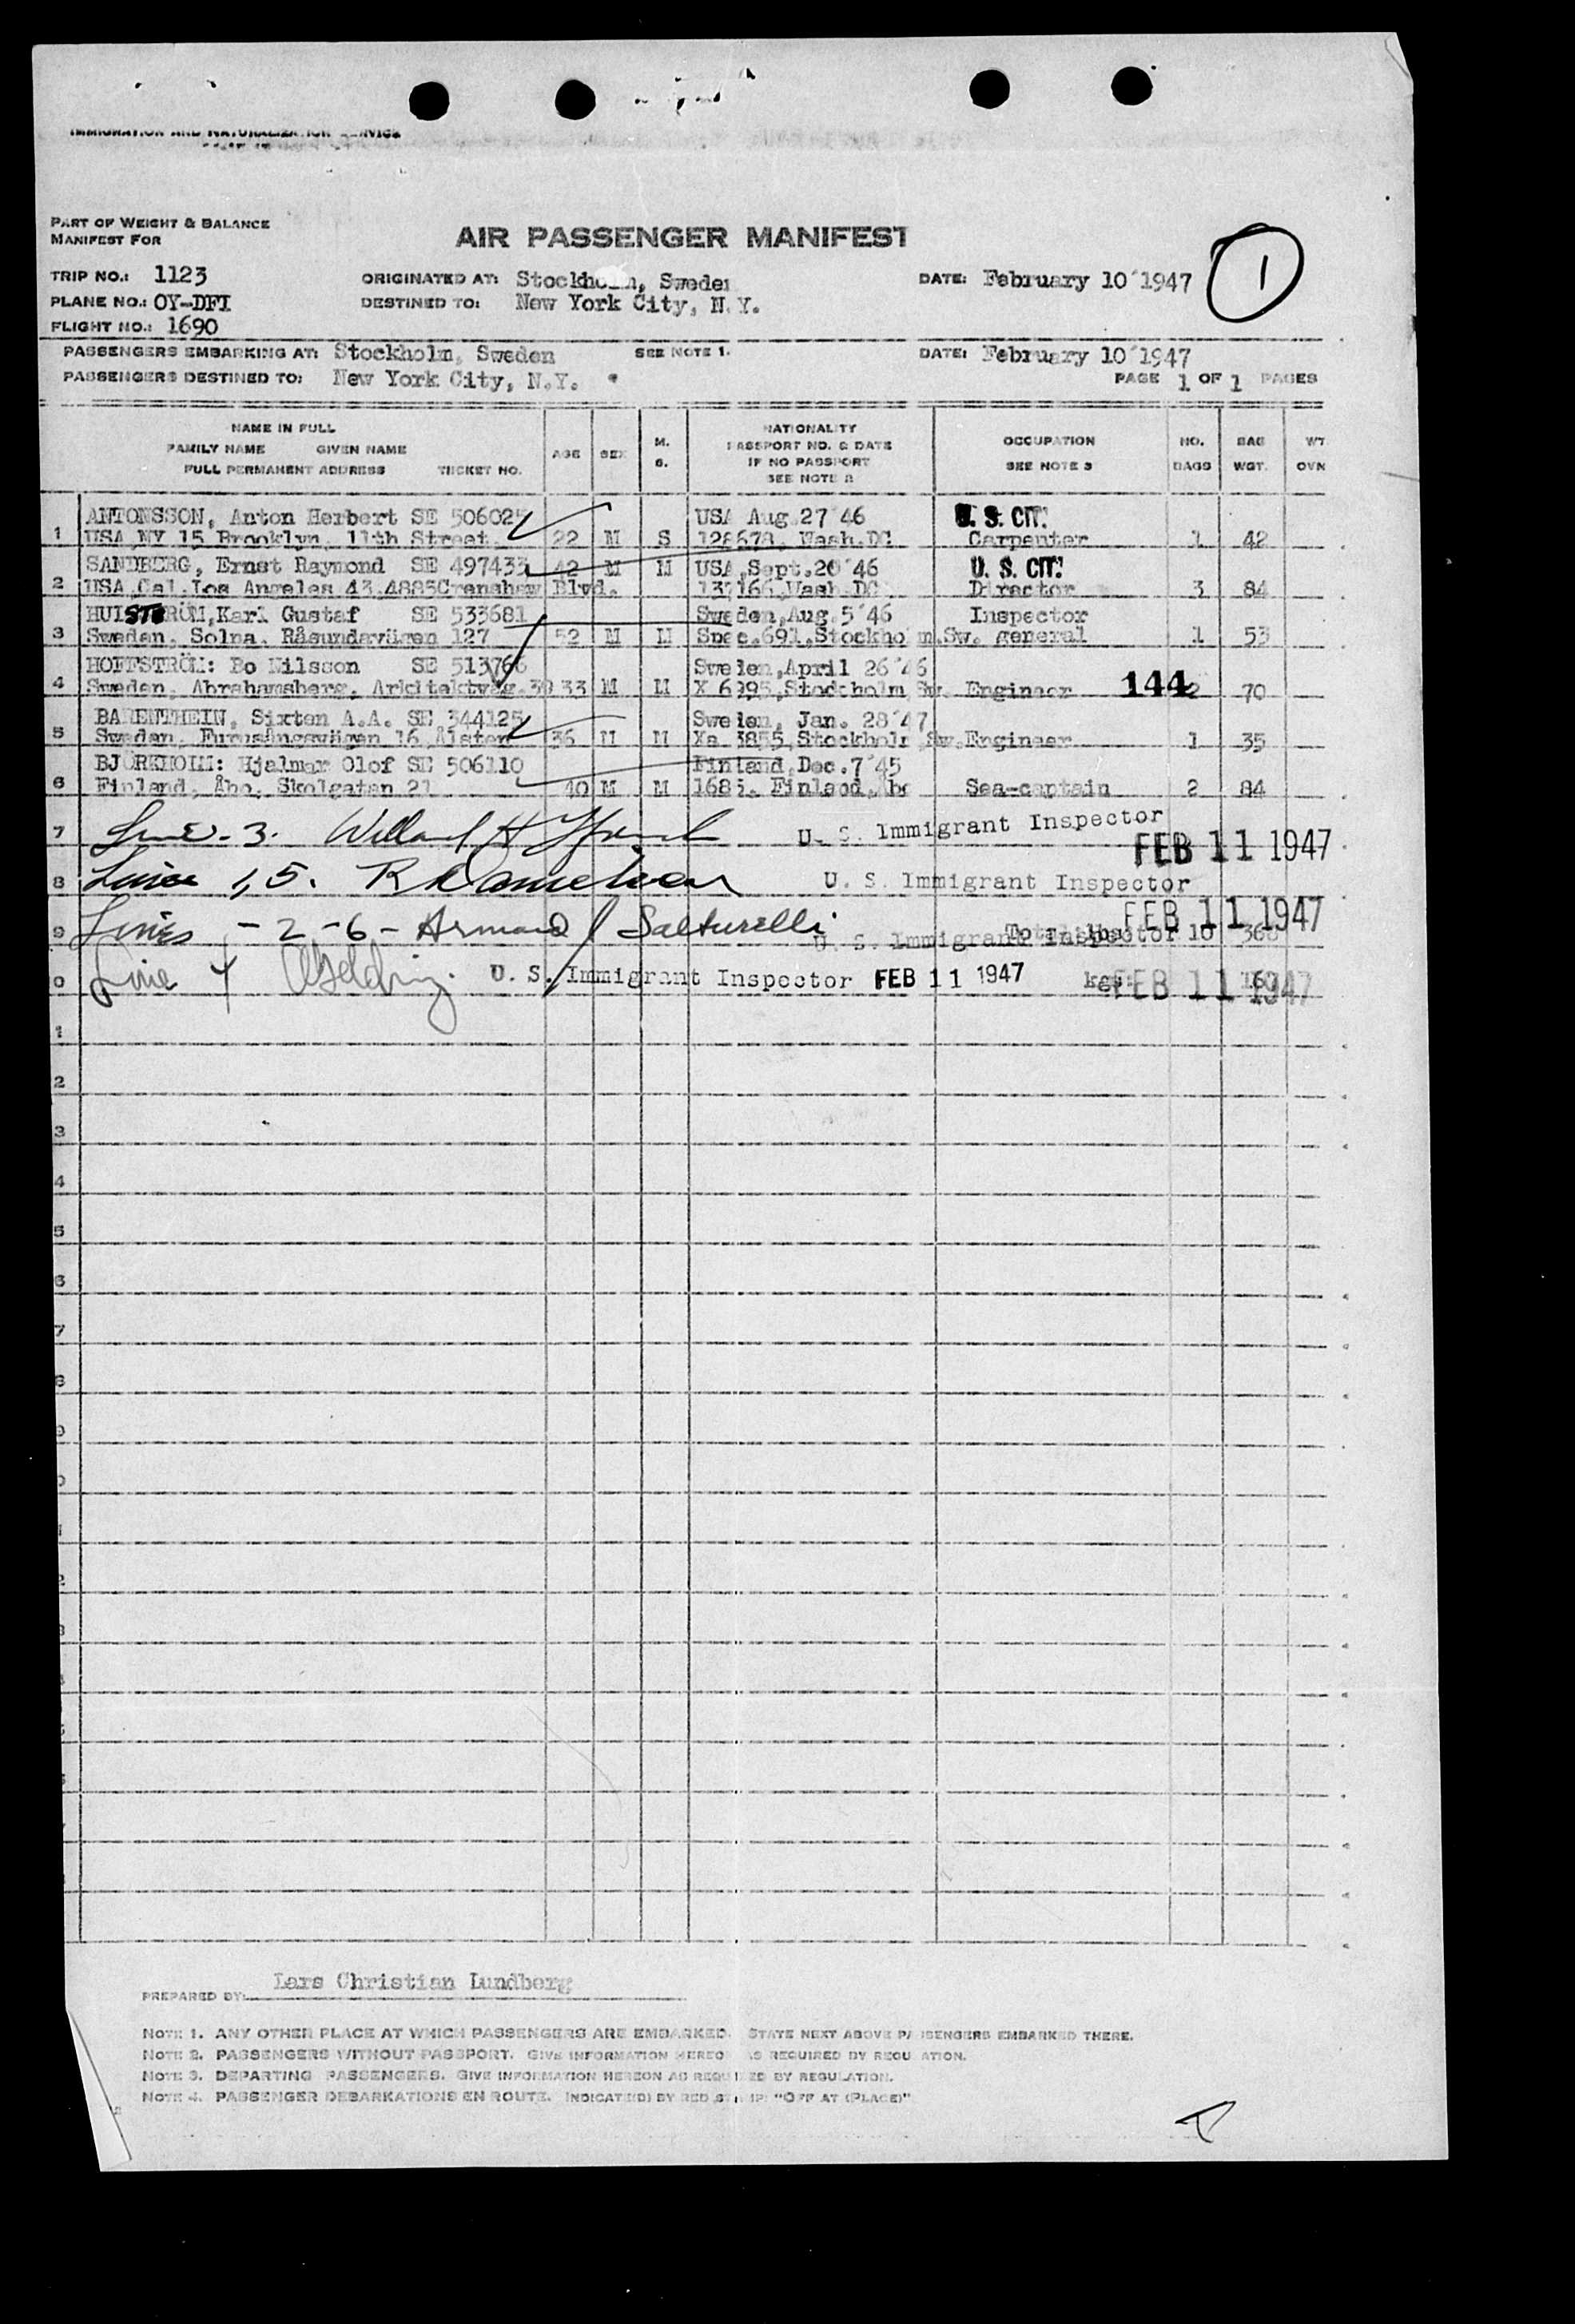 IMMIGRATION AND NATURALIZATION SERVICE
PART OF WEIGHT & BALANCE
MANIFEST FOR
AIR PASSENGER MANIFEST
1
TRIP NO.: 1123 ORIGINATED AT: Stockholm, Sweden DATE: February 10´1947
PLANE NO.: OY-DFI DESTINED TO: New York City, N.Y.
FLIGHT NO.: 1690
PASSENGERS EMBARKING AT: Stockholm, Sweden SEE NOTE 1. DATE: February 10´1947
PASSENGERS DESTINED TO: New York City, N.Y. PAGE 1 OF 1 PAGES
NAME IN FULL
FAMILY NAME GIVEN NAME
FULL PERMANENT ADDRESS TICKET NO.
AGE SEX M. S.
NATIONALITY
PASSPORT NO. & DATE
IF NO PASSPORT
SEE NOTE 2
OCCUPATION
SEE NOTE 3
NO. BAGS BAG WGT. WT OVN
ANTONSSON, Anton Herbert SE 506025 USA Aug 27´46 U. S. CIT.
1 USA NY 15 Brooklyn, 11th Street. 22 M S 128678, Wash.DC Carpenter 1 42
SANDBERG, Ernst Raymond SE 497433 42 M M USA,Sept.20´46 U. S. CIT.
2 USA Cal.Los Angeles 43.4885Crenshaw Blvd. Wash DC Director 3 84
HULSTRÖM,Karl Gustaf SE 533681 Sweden,Aug.5´46 Inspector
3 Sweden, Solna. Råsundavägen 127 52 M M Spec.691,Stockholm.Sw. general 1 53
HOFFSTRÖM: Bo Nilsson SE 513766 Sweden,April 26´46
4 Sweden, Abrahamsberg, Arkitektväg.39 33 M M X 6995,Stockholm Sw. Engineer 144 2 70
BARENTHEIN, Sixten A.A. SE 344125 Sweden, Jan. 28´47
5 Sweden, Furusångsvägen 16,Ålsten 36 M M Xa 3855,Stockholm Sw.Engineer 1 35
BJÖRKHOLM: Hjalmar Olof SE 506110 Finland,Dec.7´45
6 Finland, Åbo, Skolgatan 21 40 M M Finland,Åbo Sea-captain 2 84
7 Line-3. Willard H U. S. Immigrant Inspector
FEB 11 1947
8 Lines 1,5. U. S. Immigrant Inspector
FEB 11 1947
9 Lines -2-6- Armand J Salturelli U. S. Immigrant Inspector Total lbs 10 368
0 Line 4 U. S. Immigrant Inspector FEB 11 1947 kgs: FEB 11 1947
1
2
3
4
5
6
7
8
9
0
1
2
3
PREPARED BY: Lars Christian Lundberg
NOTE 1. ANY OTHER PLACE AT WHICH PASSENGERS ARE EMBARKED. STATE NEXT ABOVE PASSENGERS EMBARKED THERE.
NOTE 2. PASSENGERS WITHOUT PASSPORT. GIVE INFORMATION HEREON AS REQUIRED BY REGULATION.
NOTE 3. DEPARTING PASSENGERS. GIVE INFORMATION HEREON AS REQUIRED BY REGULATION.
NOTE 4. PASSENGER DEBARKATIONS EN ROUTE. INDICATE(D) BY RED STAMP: "OFF AT (PLACE)"